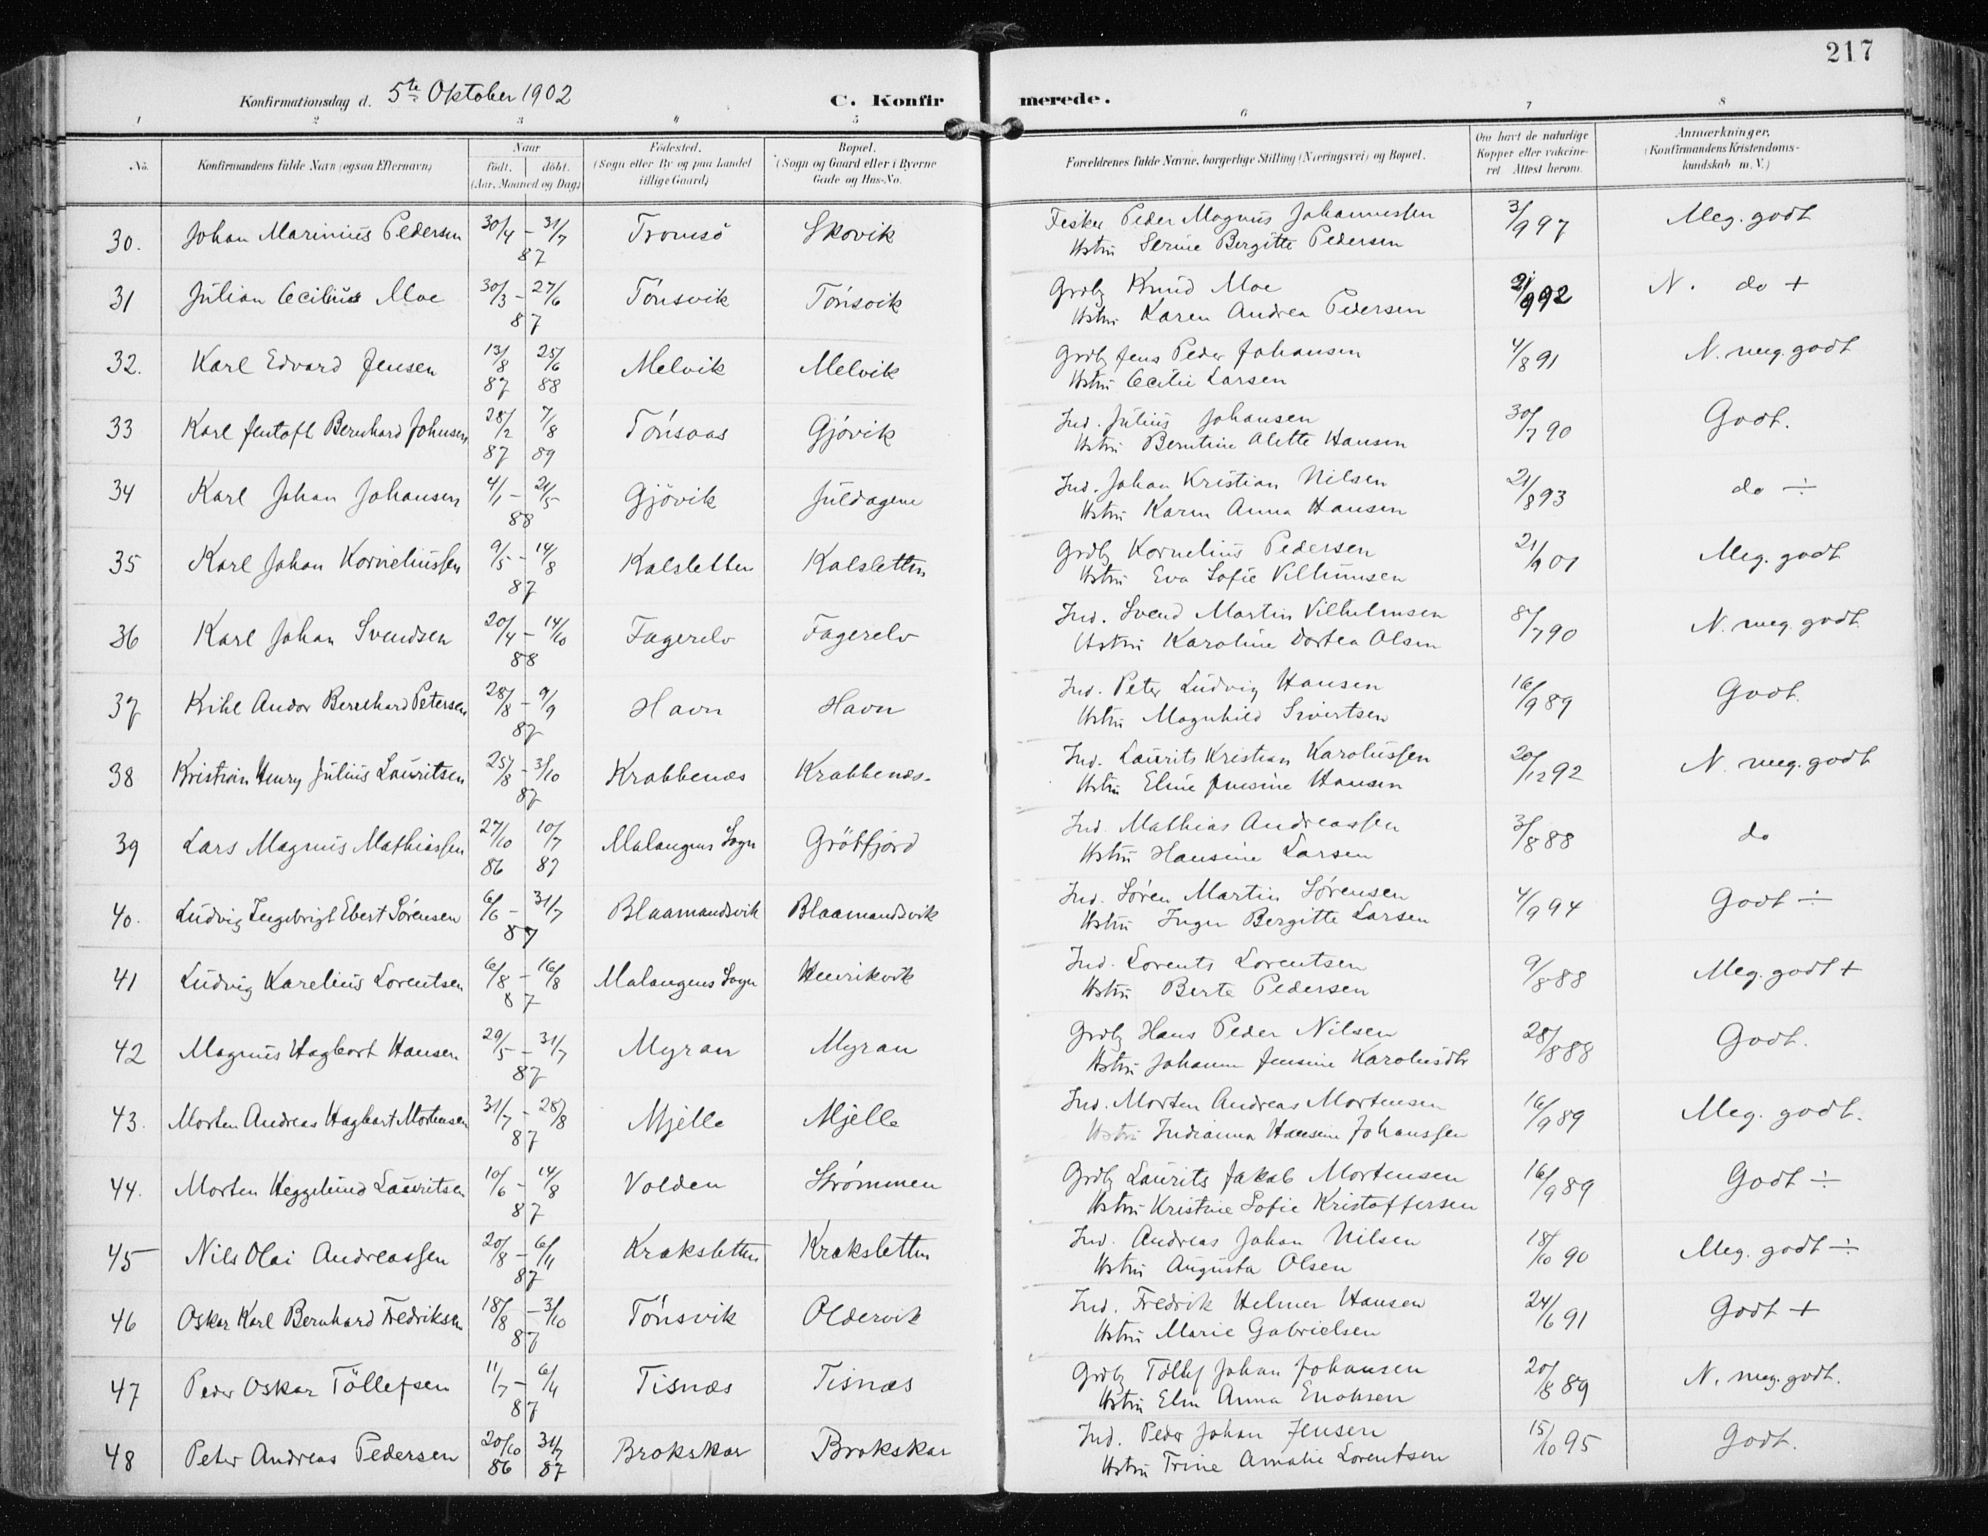 217
Konfirmationsdag d. 5te Oktober 1902 C. Konfirmerede.
1 2 3 4 5 6 7 8
No. Konfirmandens fulde Navn (ogsaa Efternavn) Naar født. døbt. (Aar, Maaned og Dag) Fødested. (Sogn eller By og paa Landet tillige Gaard) Bopæl. (Sogn og Gaard eller i Byerne Gade og Hus-No. Forældrenes fulde Navne, borgerlige Stilling (Næringsvei) og Bopæl. Om havt de naturlige Kopper eller vakcineret Attest herom. Anmærkninger, (Konfirmandens Kristendomskundskab m. V.)
30. Johan Marinius Pedersen 30/4 - 31/7 87 Tromsö Skovik Fisker Peder Magnus Johannessen 3/9 97 Meg. godt
Hstru Serine Bergitte Pedersen
31 Julian Cecilius Moe 30/3 - 27/6 87 Tönsvik Tönsvik Grdb Knud Moe 21/9 92 N. do +
Hstru Karen Andrea Pedersen
32. Karl Edvard Jensen 13/8 87 25/6 88 Melvik Melvik Grdb Jens Peder Johansen 4/8 91 N. meg. godt
Hstru Cecilie Larsen
33 Karl Jentoft Bernhard Johnsen 28/2 87 7/8 89 Tönsaas Gjövik Ind. Julius Johansen 30/7 90 Godt.
Hstru Berntine Alette Hansen
34 Karl Johan Johansen 4/1 - 21/5 88 Gjövik Juldagene Ind. Johan Kristian Nilsen 21/8 93 do ÷
Hstru Karen Anna Hansen
35 Karl Johan Korneliussen 9/5 - 14/8 87 Kalsletten Kalsletten Grdb Kornelius Pedersen 21/9 01 Meg. godt
Hstru Eva Sofie Vilhumsen
36 Karl Johan Svendsen 20/4 - 14/10 88 Fagerelv Fagerelv Ind. Svend Martin Vilhelmsen 8/7 90 N. meg godt.
Hstru Karoline Dortea Olsen
37 Kihl Andor Bernhard Petersen 28/8 - 9/9 87 Havn Havn Ind. Peter Ludvig Hansen 16/9 89 Godt.
Hstru Magnhild Sivertsen
38 Kristian Henry Julius Lauritsen 25/8 - 3/10 87 Krabbenæs Krabbenæs. Ind. Laurits Kristian Karolussen 20/12 92 N. meg. godt
Hstru Eline Jensine Hansen
39 Lars Magnus Mathiassen 27/10 86 10/7 87 Malangens Sogn Grötfjord Ind. Mathias Andreassen 31/8 88 do
Hstru Hansine Larsen
40. Ludvig Ingebrigt Ebert Sörensen 6/6 - 31/7 87 Blaamandsvik Blaamandsvik Ind. Søren Martin Sørensen 4/9 94 Godt ÷
Hstru Inger Bergitte Larsen
41 Ludvig Karelius Lorentsen 6/8 - 16/8 87 Malangens Sogn Henrikvik Ind. Lorents Lorentsen 9/8 88 Meg. godt +
Hstru Berte Pedersen
42 Magnus Hagbart Hansen 29/5 - 31/7 87 Myran Myran Grdb Hans Peder Nilsen 28/8 88 Godt.
Hstru Johanna Jensine Karolusdtr
43. Morten Andreas Hagbart Mortensen 31/7 - 28/8 87 Mjelle Mjelle Ind. Morten Andreas Mortensen 16/9 89 Meg. godt.
Hstru Indianna Hansine Johanssen
44. Morten Heggelund Lauritsen 10/6 - 14/8 87 Volden Strömmen Grdb Laurits Jakob Mortensen 16/9 89 Godt ÷
Hstru Kristine Sofie Kristoffersen
45 Nils Olai Andreassen 20/8 - 6/11 87 Kraksletten Kraksletten Ind. Andreas Johan Nilsen 18/10 90 Meg. godt ÷
Hstru Augusta Olsen
46 Oskar Karl Bernhard Fredriksen 18/8 - 3/10 87 Tönsvik Oldervik Ind. Fredrik Helmer Hansen 24/6 91 Godt +
Hstru Marie Gabrielsen
47 Peder Oskar Töllefsen 11/7 - 6/4 87 Tisnæs Tisnæs Grdb Töllef Johan Johansen 20/8 89 N. meg. godt.
Hstru Elen Anna Enoksen
48 Peter Andreas Pedersen 20/10 86 31/7 87 Brokskar Brokskar Ind. Peder Johan Jensen 15/10 95 Godt.
Hstru Trine Amalie Lorentsen